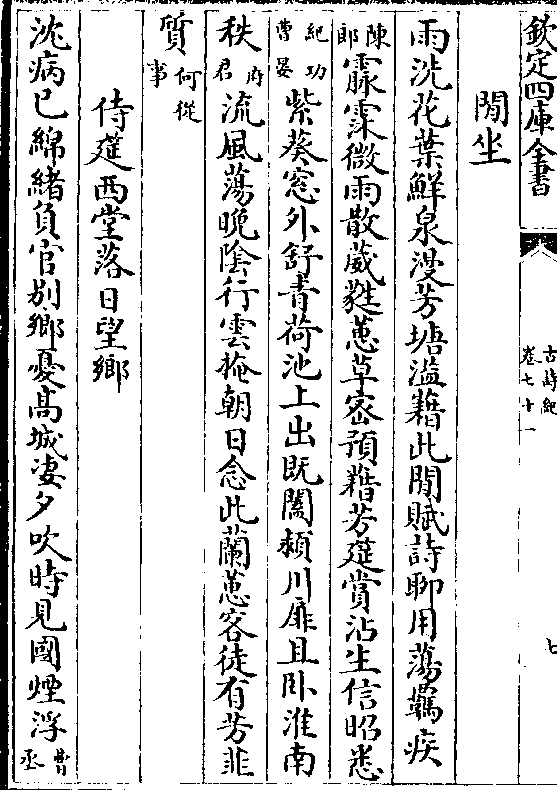 欽定四庫全書
古詩紀
卷七十一
七
閒坐
雨洗花葉鮮泉漫芳塘溢藉此閒賦詩聊用蕩羈疾
陳郎霡霂微雨散葳蕤蕙草密預藉芳筵賞沾生信昭悉
紀功曹晏紫葵窓外舒青荷池上出既闔潁川扉且卧淮南
秩府君流風蕩晚陰行雲掩朝日念此蘭蕙客徒有芳菲
質何從事
侍筵西堂落日望鄉
沈病已綿緒負官别鄉憂髙城淒夕吹時見國煙浮曹丞